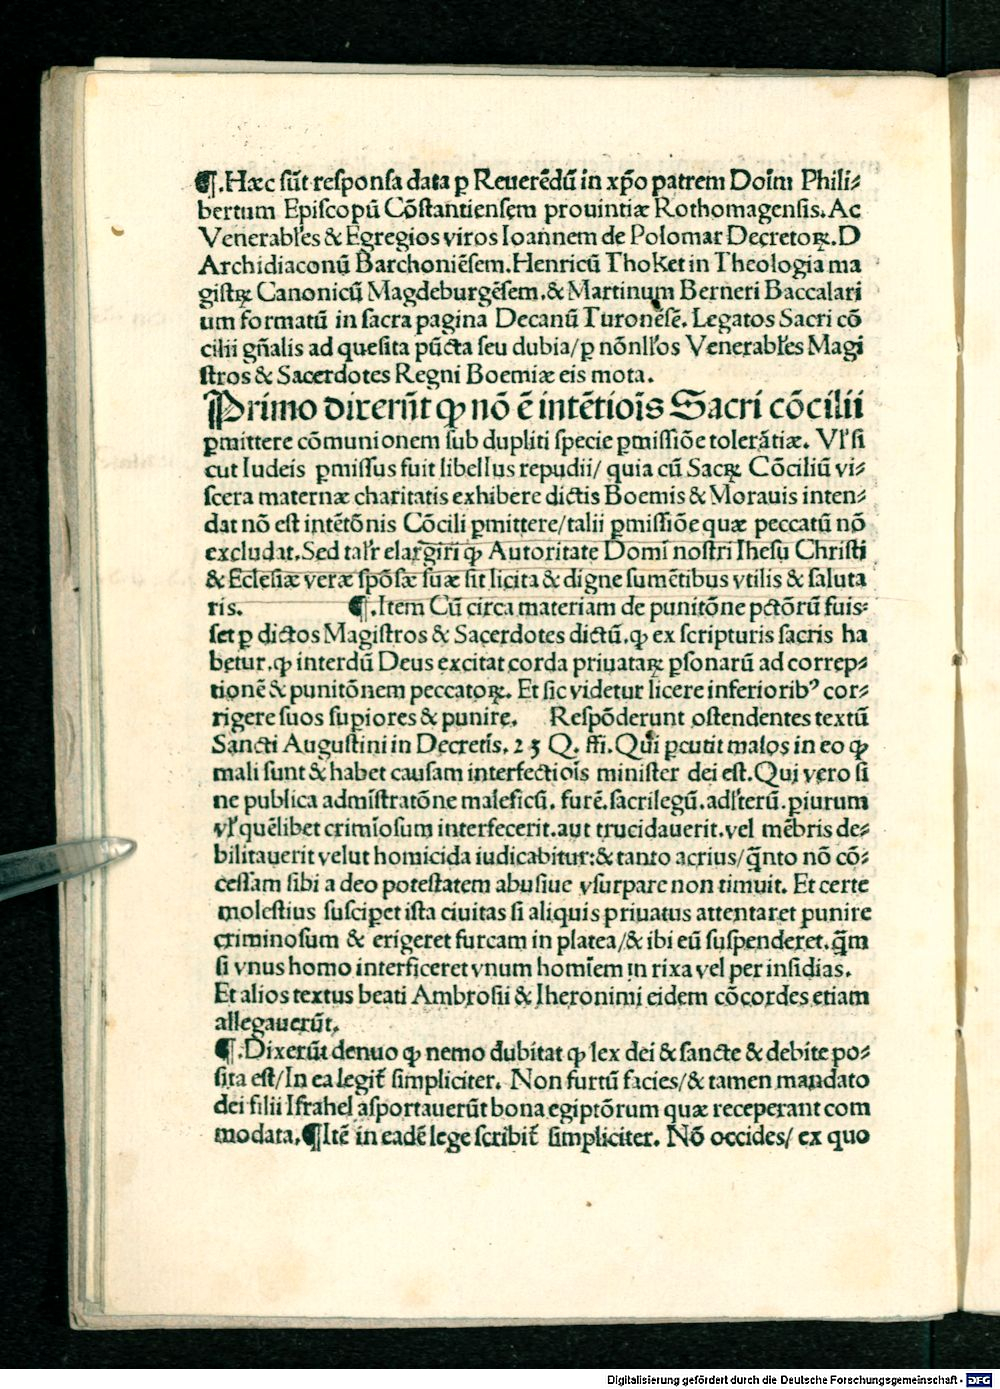 ¶.Hæc sūt responsa data ꝑ Reuerēdū in xp̄o patrem Doīm Phili⸗
bertum Episcopū Cōstantiensem prouintiæ Rothomagensis. Ac
Venerabl̓es & Egregios viros Ioannem de Polomar Decretoꝝ. D
Archidiaconū Barchoniēsem. Henricū Thoket in Theologia ma
gistꝝ Canonicū Magdeburgēsem. & Martinum Berneri Baccalari
um formatū in sacra pagina Decanū Turonēsē. Legatos Sacri cō
cilii gn̄alis ad quesita pūcta seu dubia/ ꝑ nōnll̓os Venerabl̓es Magi
stros & Sacerdotes Regni Boemiæ eis mota.
Primo dixerūt ꝙ nō ē intētiois̄ Sacri cōcilii
ꝑmittere cōmunionem sub dupliti specie ꝑmissiōe tolerātiæ. Vl̓ si
cut Iudeis ꝑmissus fuit libellus repudii/ quia cū Sacꝝ Cōciliū vi⸗
scera maternæ charitatis exhibere dictis Boemis & Morauis inten⸗
dat nō est intētōnis Cōcili ꝑmittere/ talii ꝑmissiōe quæ peccatū nō
excludat. Sed talr̓ elargiri ꝙ Autoritate Domī nostri Ihesu Christi
& Eclesiæ veræ spōsæ suæ sit licita & digne sumētibus vtilis & saluta
ris. ¶.Item Cū circa materiam de punitōne pctōrū fuis⸗
set ꝑ dictos Magistros & Sacerdotes dictū. ꝙ ex scripturis sacris ha
betur. ꝙ interdū Deus excitat corda priuataꝝ ꝑsonarū ad correp⸗
tionē & punitōnem peccatoꝝ. Et sic videtur licere inferiorib⁹ cor⸗
rigere suos suꝑiores & punire. Respōderunt ostendentes textū
Sancti Augustini in Decretis̄. 23 Q. ffi. Qui ꝑcutit malos in eo ꝙ
mali sunt & habet causam interfectiois̄ minister dei est. Qui vero si
ne publica admīstratōne maleficū. furē. sacrilegū. adl̓terū. ꝑiurum
vl̓ quēlibet crimīosum interfecerit. aut trucidauerit. vel mēbris de⸗
bilitauerit velut homicida iudicabitur: & tanto acrius/ q̄nto nō cō⸗
cessam sibi a deo potestatem abusiue vsurpare non timuit. Et certe
molestius susciꝑet ista ciuitas si aliquis priuatus attentaret punire
criminosum & erigeret furcam in platea/ & ibi eū suspenderet. q̄m
si vnus homo interficeret vnum homīem in rixa vel per insidias.
Et alios textus beati Ambrosii & Iheronimi eidem cōcordes etiam
allegauerūt.
¶.Dixerūt denuo ꝙ nemo dubitat ꝙ lex dei & sancte & debite po⸗
sita est/ In ea legit̄ simpliciter. Non furtū facies/ & tamen mandato
dei filii Israhel asportauerūt bona egiptōrum quæ receperant com
modata. ¶Itē in eadē lege scribit̄ simpliciter. Nō occides/ ex quo
Digitalisierung gefördert durch die Deutsche Forschungsgemeinschaft - DFG